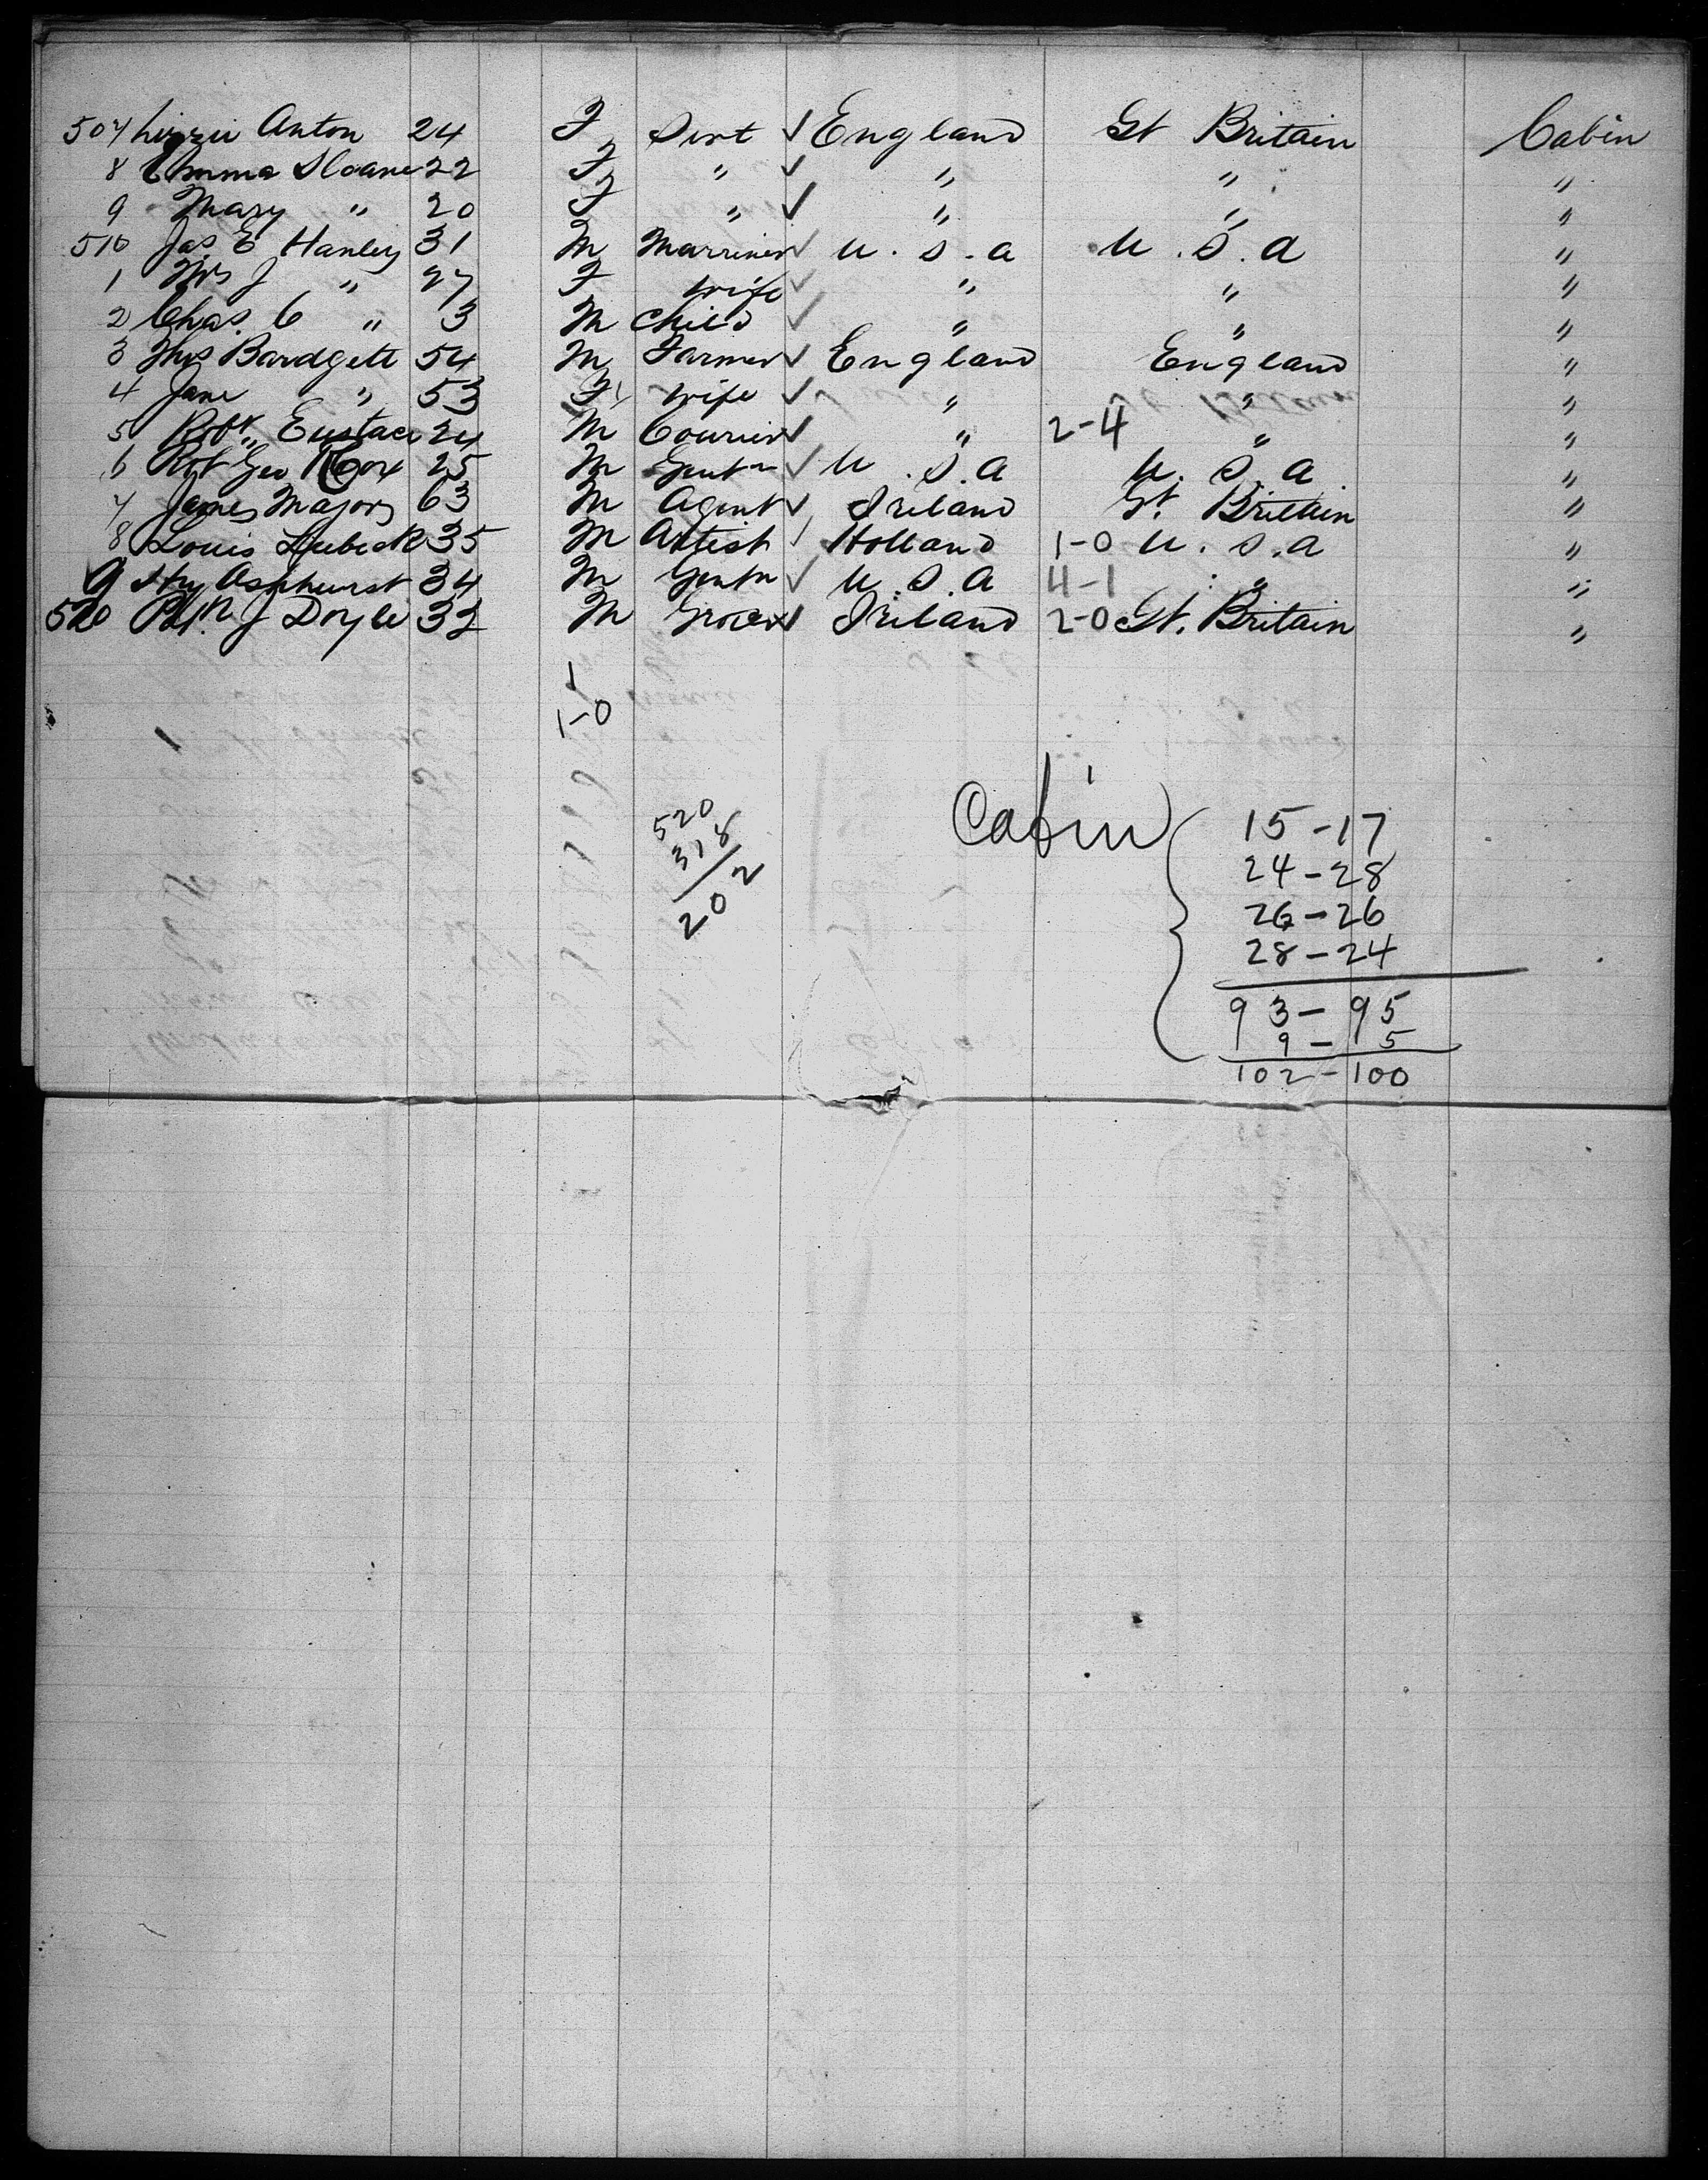 507 Lizzie Anton 24 F Servt ✓ England Gt Britain Cabin
8 Emma Sloane 22 F " ✓ " " "
9 Mary " 20 F " ✓ " " "
510 Jas E Hanley 31 M Marriner ✓ U.S.A U.S.A "
1 Mrs J " 27 F Wife ✓ " " "
2 Chas. C " 3 M Child ✓ " " "
3 Thos Bardgett 54 M Farmer ✓ England England "
4 Jane " 53 F Wife ✓ " " "
5 Robt Eustace 24 M Courier ✓ " 2-4 " "
6 Rbt Geo Cox 25 M Gentn ✓ U.S.A U.S.A "
7 James Majors 63 M Agent ✓ Ireland Gt. Brittain "
8 Louis Lubeck 35 M Artist / Holland 1-0 U.S.A "
9 Hy Ashhurst 34 M Gentn ✓ U.S.A 4-1 " "
520 Patk J Doyle 32 M Grocer ✓ Ireland 2-0 Gt. Britain "
1
1-0
520
318
202
Cabin
15-17
24-28
26-26
28-24
93-95
9-5
102-100